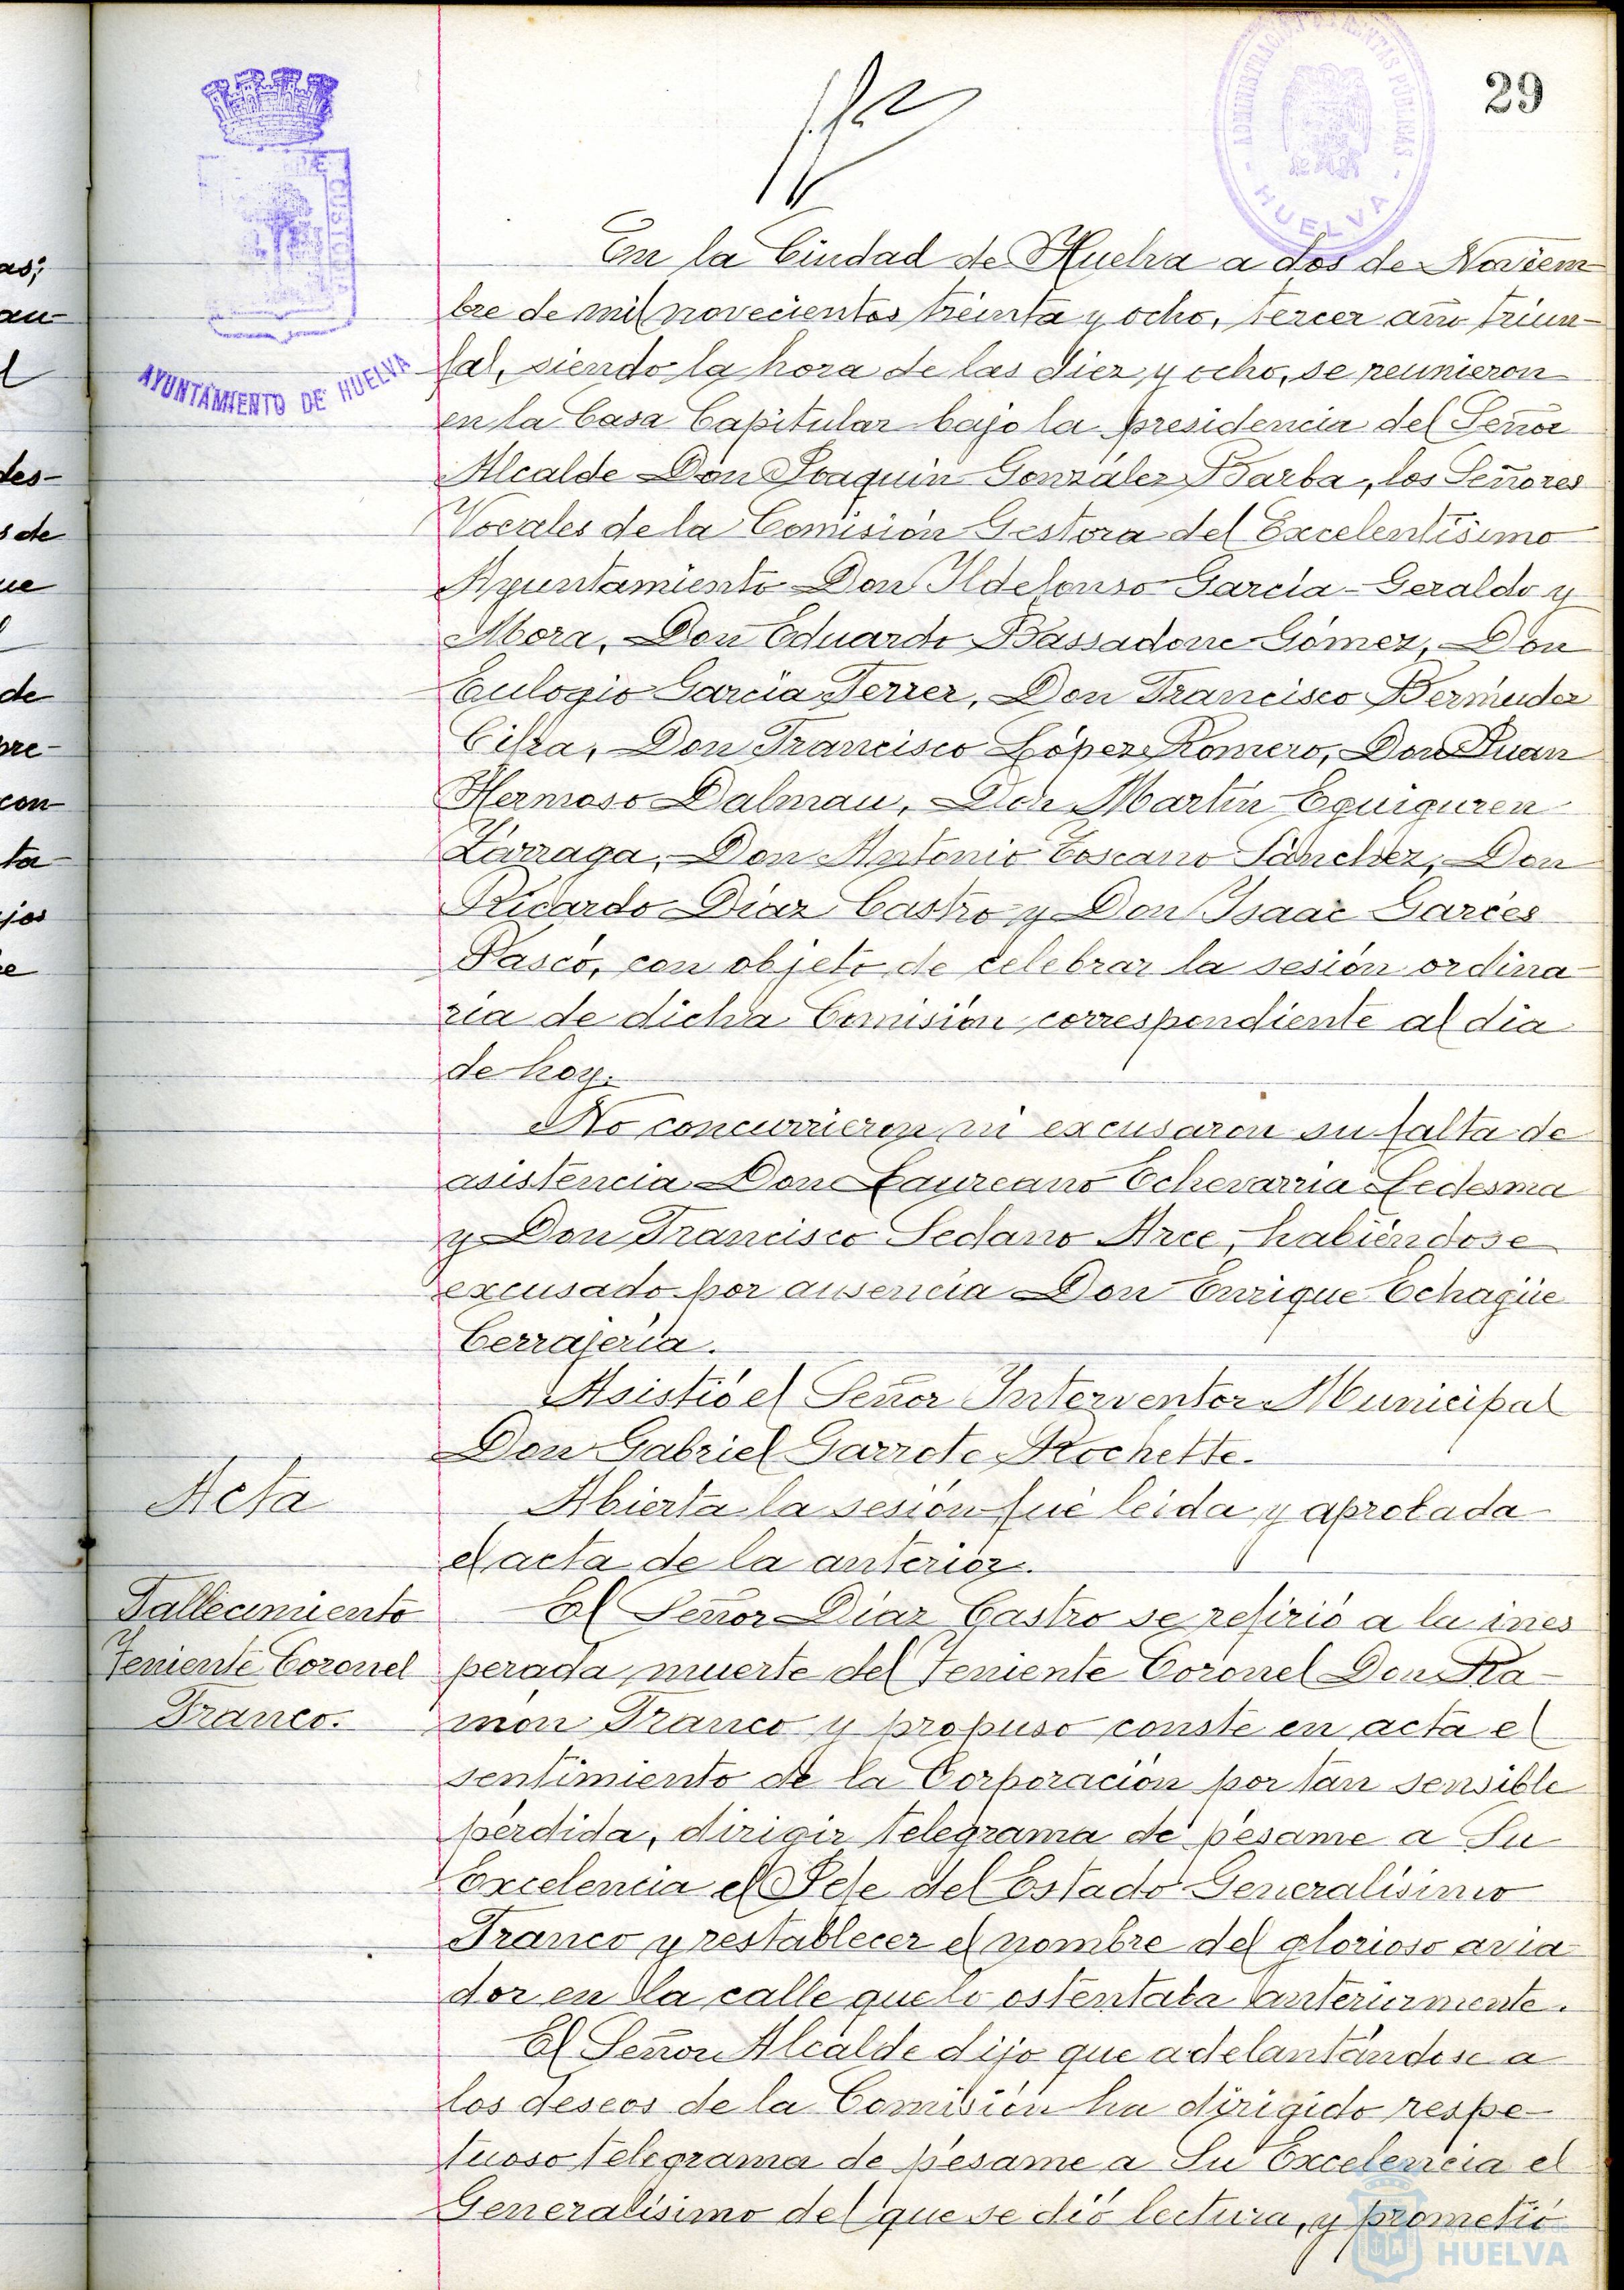 29
ADMINISTRACIÓN DE RENTAS PÚBLICAS
- HUELVA -
CUSTODIA
AYUNTAMIENTO DE HUELVA
as;
au-
des-
s de
ue
de
pre-
con
ta
jos
e
En la Ciudad de Huelva a dos de Noviem-
bre de mil novecientos treinta y ocho, tercer año triun-
fal, siendo la hora de las diez y ocho, se reunieron
en la Casa Capitular bajo la presidencia del Señor
Alcalde Don Joaquin González Barba, los Señores
Vocales de la Comisión Gestora del Excelentísimo
Ayuntamiento Don Ildefonso García-Geraldo y
Mora, Don Eduardo Bassadone Gómez, Don
Eulogio García Ferrer, Don Francisco Bermudez
Cifra, Don Francisco López Romero, Don Juan
Hermoso Dalmau, Don Martín Eguiguren
Zárraga, Don Antonio Toscano Sánchez, Don
Ricardo Díaz Castro y Don Isaac Garcés
Pascó, con objeto de celebrar la sesión ordina-
ria de dicha Comisión correspondiente al dia
de hoy.
No concurrieron ni excusaron su falta de
asistencia Don Laureano Echevarria Ledesma
y Don Francisco Sedano Arce, habiéndose
excusado por ausencia Don Enrique Echagüe
Cerrajería.
Asistió el Señor Interventor Municipal
Don Gabriel Garrote Rochette.
Acta
Abierta la sesión fué leida y aprobada
el acta de la anterior.
Fallecimiento
Teniente Coronel
Franco.
El Señor Díaz Castro se refirió a la ines
perada muerte del Teniente Coronel Don Ra-
món Franco y propuso conste en acta el
sentimiento de la Corporación por tan sensible
pérdida, dirigir telegrama de pésame a Su
Excelencia el Jefe del Estado Generalísimo
Franco y restablecer el nombre del glorioso avia-
dor en la calle que lo ostentaba anteriormente.
El Señor Alcalde dijo que adelantándose a
los deseos de la Comisión ha dirigido respe-
tuoso telegrama de pésame a Su Excelencia el
Generalísimo del que se dió lectura, y prometió
HUELVA